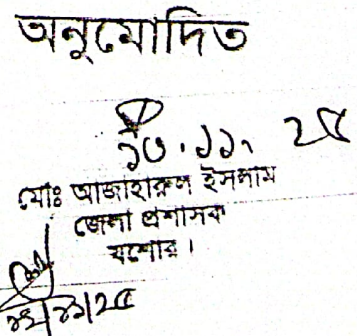 অনুমোদিত
১৩.১১.২৫
মোঃ আজাহারুল ইসলাম
জেলা প্রশাসক
যশোর।